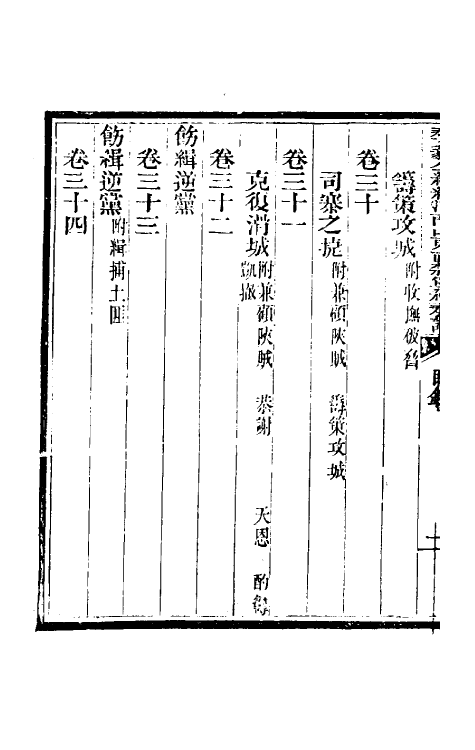 籌策攻城 附收撫被脅
卷三十
司寨之捷 附兼顧陝賊 籌策攻城
卷三十一
克復滑城 附兼顧陝賊 恭謝 天恩 酌籌
凱撤
卷三十二
飭緝逆黨
卷三十三
飭緝逆黨 附緝捕土匪
卷三十四
二